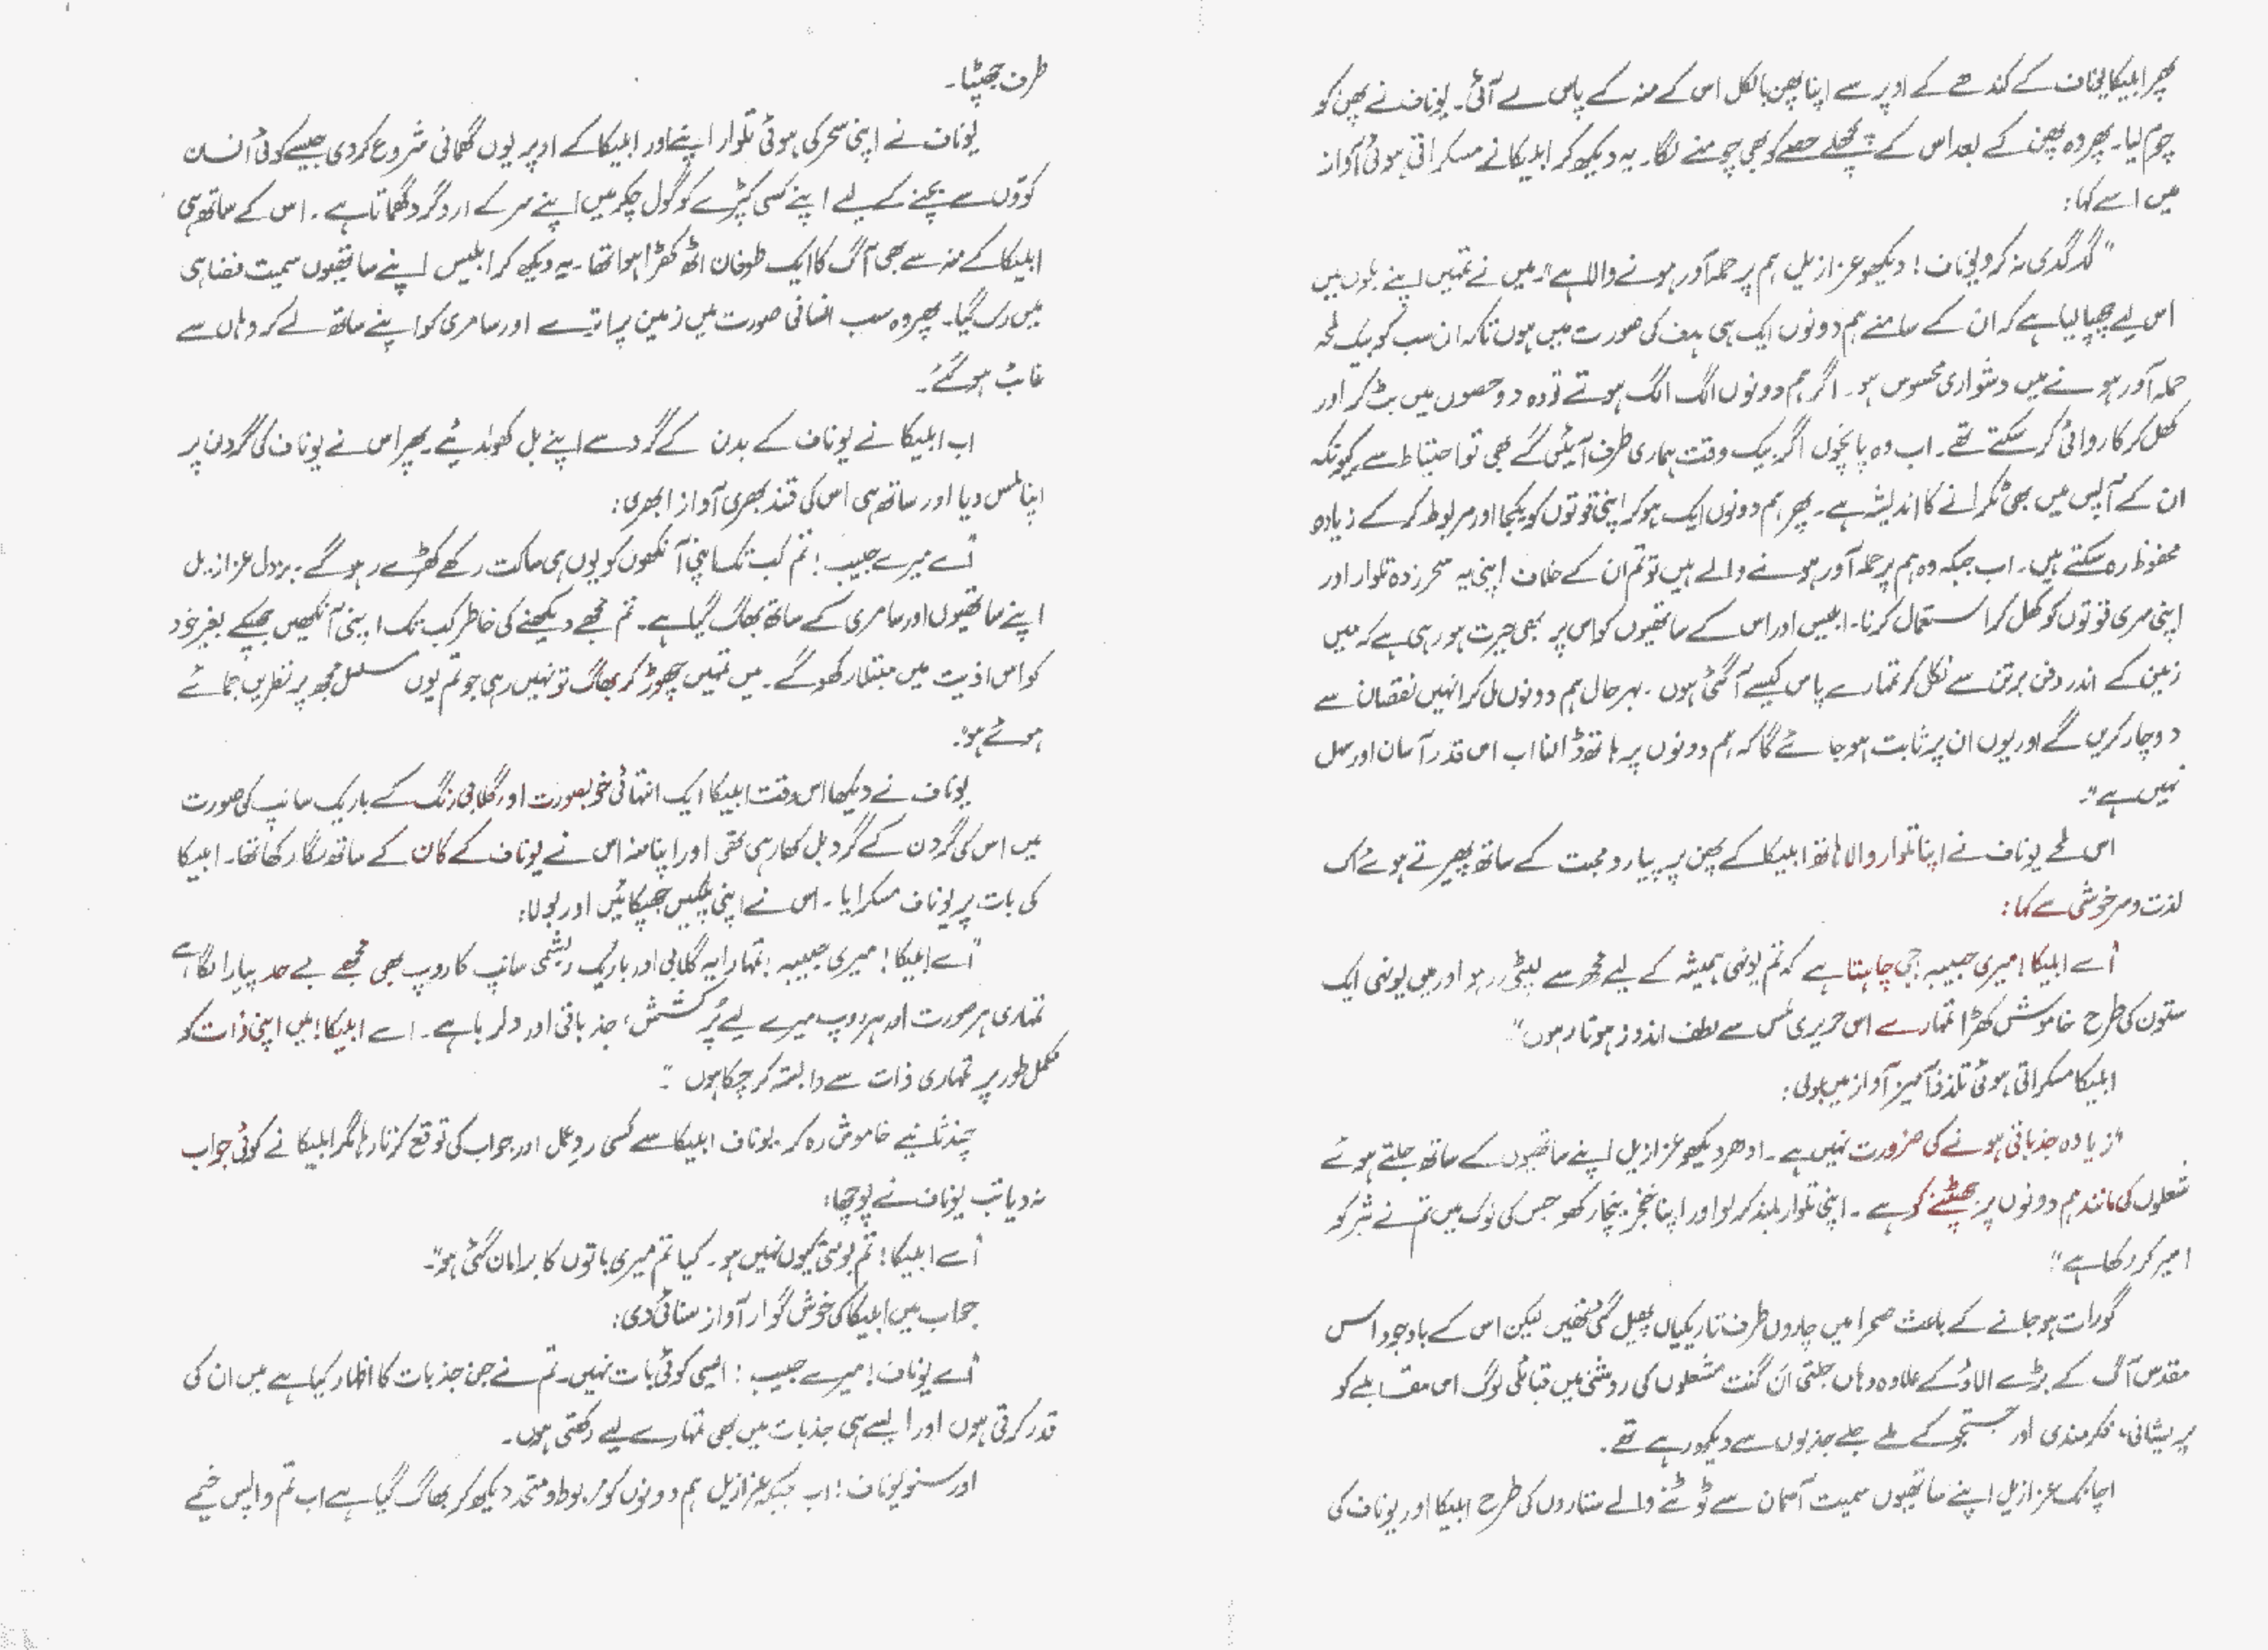 پھر ابلیکا یوناف کے کندھے کے اوپر سے اپنا پھن بالکل اس کے منہ کے پاس لے آئی۔ یوناف نے پھن کو
چوم لیا۔ پھر وہ پھن کے بعد اس کے پچھلے حصے کو بھی چومنے لگا۔ یہ دیکھ کر ابلیکا نے مسکراتی ہوئی آواز
میں اسے کہا:
"گدگدی نہ کرو یوناف! دیکھو عزازیل ہم پر حملہ آور ہونے والا ہے۔ میں نے تمہیں اپنے بلوں میں
اس لیے چھپا لیا ہے کہ ان کے سامنے ہم دونوں ایک ہی ہدف کی صورت میں ہوں تاکہ ان سب کو بیک لمحہ
حملہ آور ہونے میں دشواری محسوس ہو۔ اگر ہم دونوں الگ الگ ہوتے تو وہ دو حصوں میں بٹ کر اور
کھل کر کاروائی کر سکتے تھے۔ اب وہ پانچوں اگر بیک وقت ہماری طرف آئیں گے بھی تو احتیاط سے کیونکہ
ان کے آپس میں بھی ٹکرانے کا اندیشہ ہے۔ پھر ہم دونوں ایک ہو کر اپنی قوتوں کو یکجا اور مربوط کر کے زیادہ
محفوظ رہ سکتے ہیں۔ اب جبکہ وہ ہم پر حملہ آور ہونے والے ہیں تو تم ان کے خلاف اپنی یہ سحر زدہ تلوار اور
اپنی سری قوتوں کو کھل کر استعمال کرنا۔ ابلیس اور اس کے ساتھیوں کو اس پر بھی حیرت ہو رہی ہے کہ میں
زمین کے اندر دفن برتن سے نکل کر تمہارے پاس کیسے آ گئی ہوں۔ بہرحال ہم دونوں مل کر انہیں نقصان سے
دوچار کریں گے اور یوں ان پر ثابت ہو جائے گا کہ ہم دونوں پر ہاتھ ڈالنا اب اس قدر آسان اور سہل
نہیں ہے"۔
اس لمحے یوناف نے اپنا تلوار والا ہاتھ ابلیکا کے پھن پر پیار و محبت کے ساتھ پھیرتے ہوئے اک
لذت و سرخوشی سے کہا:
"اے ابلیکا! میری حبیبہ جی چاہتا ہے کہ تم یونہی ہمیشہ کے لیے مجھ سے لپٹی رہو اور میں یونہی ایک
ستون کی طرح خاموش کھڑا تمہارے اس حریری لمس سے لطف اندوز ہوتا رہوں"
ابلیکا مسکراتی ہوئی تلذذ آمیز آواز میں بولی:
"زیادہ جذباتی ہونے کی ضرورت نہیں ہے۔ ادھر دیکھو عزازیل اپنے ساتھیوں کے ساتھ جلتے ہوئے
شعلوں کی مانند ہم دونوں پر جھپٹنے کو ہے۔ اپنی تلوار بلند کر لو اور اپنا خنجر نیچا رکھو جس کی نوک میں تم نے شر کو
اسیر کر رکھا ہے"
گو رات ہو جانے کے باعث صحرا میں چاروں طرف تاریکیاں پھیل گئی تھیں لیکن اس کے باوجود اس
مقدس آگ کے بڑے الاؤ کے علاوہ وہاں جلتی ان گنت مشعلوں کی روشنی میں قبائلی لوگ اس مقابلے کو
پریشانی، فکرمندی اور جستجو کے ملے جلے جذبوں سے دیکھ رہے تھے۔
اچانک عزازیل اپنے ساتھیوں سمیت آسمان سے ٹوٹنے والے ستاروں کی طرح ابلیکا اور یوناف کی
طرف جھپٹا۔
یوناف نے اپنی سحر کی ہوئی تلوار اپنے اور ابلیکا کے اوپر یوں گھمانی شروع کر دی جیسے کوئی انسان
کوّوں سے بچنے کے لیے اپنے کسی کپڑے کو گول چکر میں اپنے سر کے اردگرد گھماتا ہے۔ اس کے ساتھ ہی
ابلیکا کے منہ سے بھی آگ کا ایک طوفان اٹھ کھڑا ہوا تھا۔ یہ دیکھ کر ابلیس اپنے ساتھیوں سمیت فضا ہی
میں رک گیا۔ پھر وہ سب انسانی صورت میں زمین پر اترے اور سامری کو اپنے ساتھ لے کر وہاں سے
غائب ہو گئے۔
اب ابلیکا نے یوناف کے بدن کے گرد سے اپنے بل کھول دیئے۔ پھر اس نے یوناف کی گردن پر
اپنا لمس دیا اور ساتھ ہی اس کی قند بھری آواز ابھری:
"اے میرے حبیب! تم کب تک اپنی آنکھوں کو یوں ہی ساکت رکھے کھڑے رہو گے۔ بزدل عزازیل
اپنے ساتھیوں اور سامری کے ساتھ بھاگ گیا ہے۔ تم مجھے دیکھنے کی خاطر کب تک اپنی آنکھیں جھپکے بغیر خود
کو اس اذیت میں مبتلا رکھو گے۔ میں تمہیں چھوڑ کر بھاگ تو نہیں رہی جو تم یوں مسلسل مجھ پر نظریں جمائے
ہوئے ہو"۔
یوناف نے دیکھا اس وقت ابلیکا ایک انتہائی خوبصورت اور گلابی رنگ کے باریک سانپ کی صورت
میں اس کی گردن کے گرد بل کھا رہی تھی اور اپنا منہ اس نے یوناف کے کان کے ساتھ لگا رکھا تھا۔ ابلیکا
کی بات پر یوناف مسکرایا۔ اس نے اپنی پلکیں جھپکائیں اور بولا:
"اے ابلیکا! میری حبیبہ! تمہارا یہ گلابی اور باریک ریشمی سانپ کا روپ بھی مجھے بے حد پیارا لگا ہے
تمہاری ہر صورت اور ہر روپ میرے لیے پُرکشش، جذباتی اور دلربا ہے۔ اے ابلیکا! میں اپنی ذات کو
مکمل طور پر تمہاری ذات سے وابستہ کر چکا ہوں"۔
چند ثانیے خاموش رہ کر یوناف ابلیکا سے کسی ردِعمل اور جواب کی توقع کرتا رہا مگر ابلیکا نے کوئی جواب
نہ دیا تب یوناف نے پوچھا:
"اے ابلیکا! تم بولتی کیوں نہیں ہو۔ کیا تم میری باتوں کا برا مان گئی ہو"۔
جواب میں ابلیکا کی خوش گوار آواز سنائی دی:
"اے یوناف! میرے حبیب! ایسی کوئی بات نہیں۔ تم نے جن جذبات کا اظہار کیا ہے میں ان کی
قدر کرتی ہوں اور ایسے ہی جذبات میں بھی تمہارے لیے رکھتی ہوں۔
اور سنو یوناف! اب جبکہ عزازیل ہم دونوں کو مربوط و متحد دیکھ کر بھاگ گیا ہے اب تم واپس خیمے